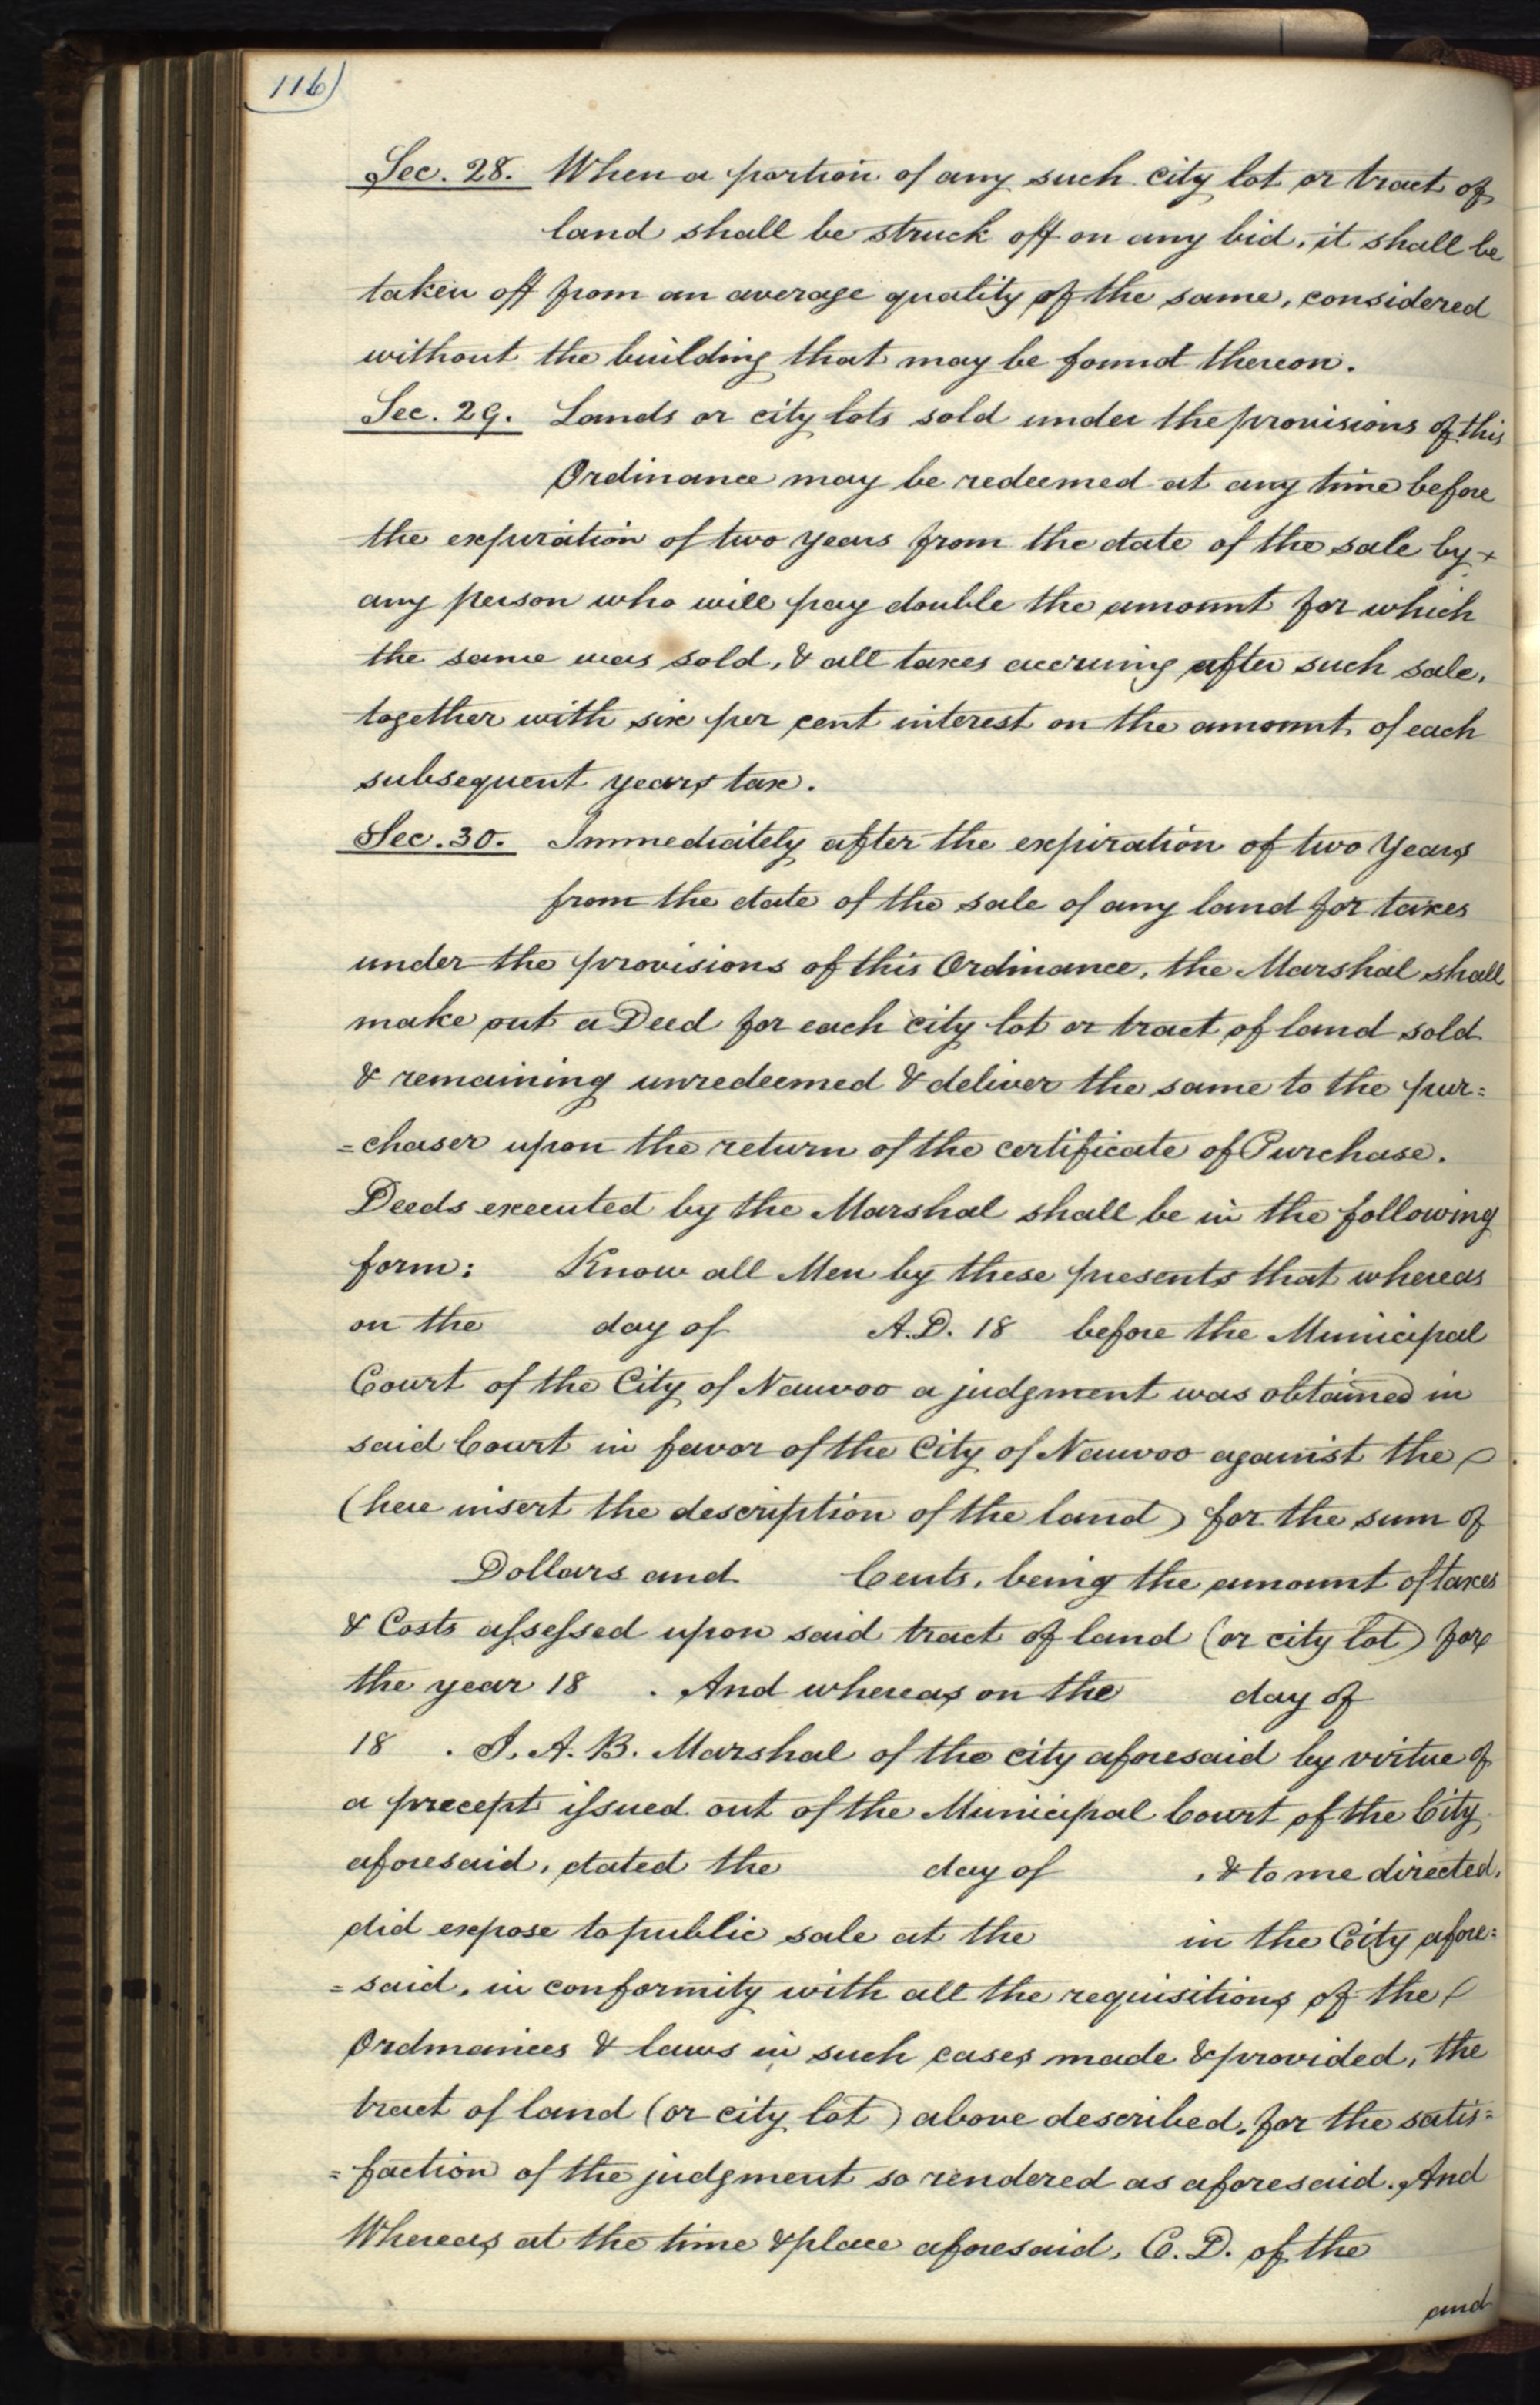 116)
Sec. 28. When a portion of any such city lot or tract of
land shall be struck off on any bid, it shall be
taken off from an average quality of the same, considered
without the building that may be found thereon.
Sec. 29. Lands or city lots sold under the provisions of this
Ordinance may be redeemed at any time before
the expiration of two years from the date of the sale by
any person who will pay double the amount for which
the same was sold, & all taxes accruing after such sale,
together with six per cent interest on the amount of each
subsequent years tax.
Sec. 30. Immediately after the expiration of two Years
from the date of the sale of any land for taxes
under the provisions of this Ordinance, the Marshal shall
make out a Deed for each city lot or tract of land sold
& remaining unredeemed & deliver the same to the pur=
=chaser upon the return of the certificate of Purchase.
Deeds executed by the Marshal shall be in the following
form: Know all Men by these presents that whereas
on the day of A.D. 18 before the Municipal
Court of the City of Nauvoo a judgment was obtained in
said Court in favor of the City of Nauvoo against the
(here insert the description of the land) for the sum of
Dollars and Cents, being the amount of taxes
& Costs assessed upon said tract of land (or city lot) for
the year 18 . And whereas on the day of
18 . I. A. B. Marshal of the city aforesaid by virtue of
a precept issued out of the Municipal Court of the City
aforesaid, dated the day of , & to me directed,
did expose to public sale at the in the City afore=
=said, in conformity with all the requisitions of the
Ordinances & laws in such cases made & provided, the
tract of land (or city lot) above described, for the satis=
=faction of the judgment so rendered as aforesaid. And
Whereas at the time & place aforesaid, C. D. of the
and